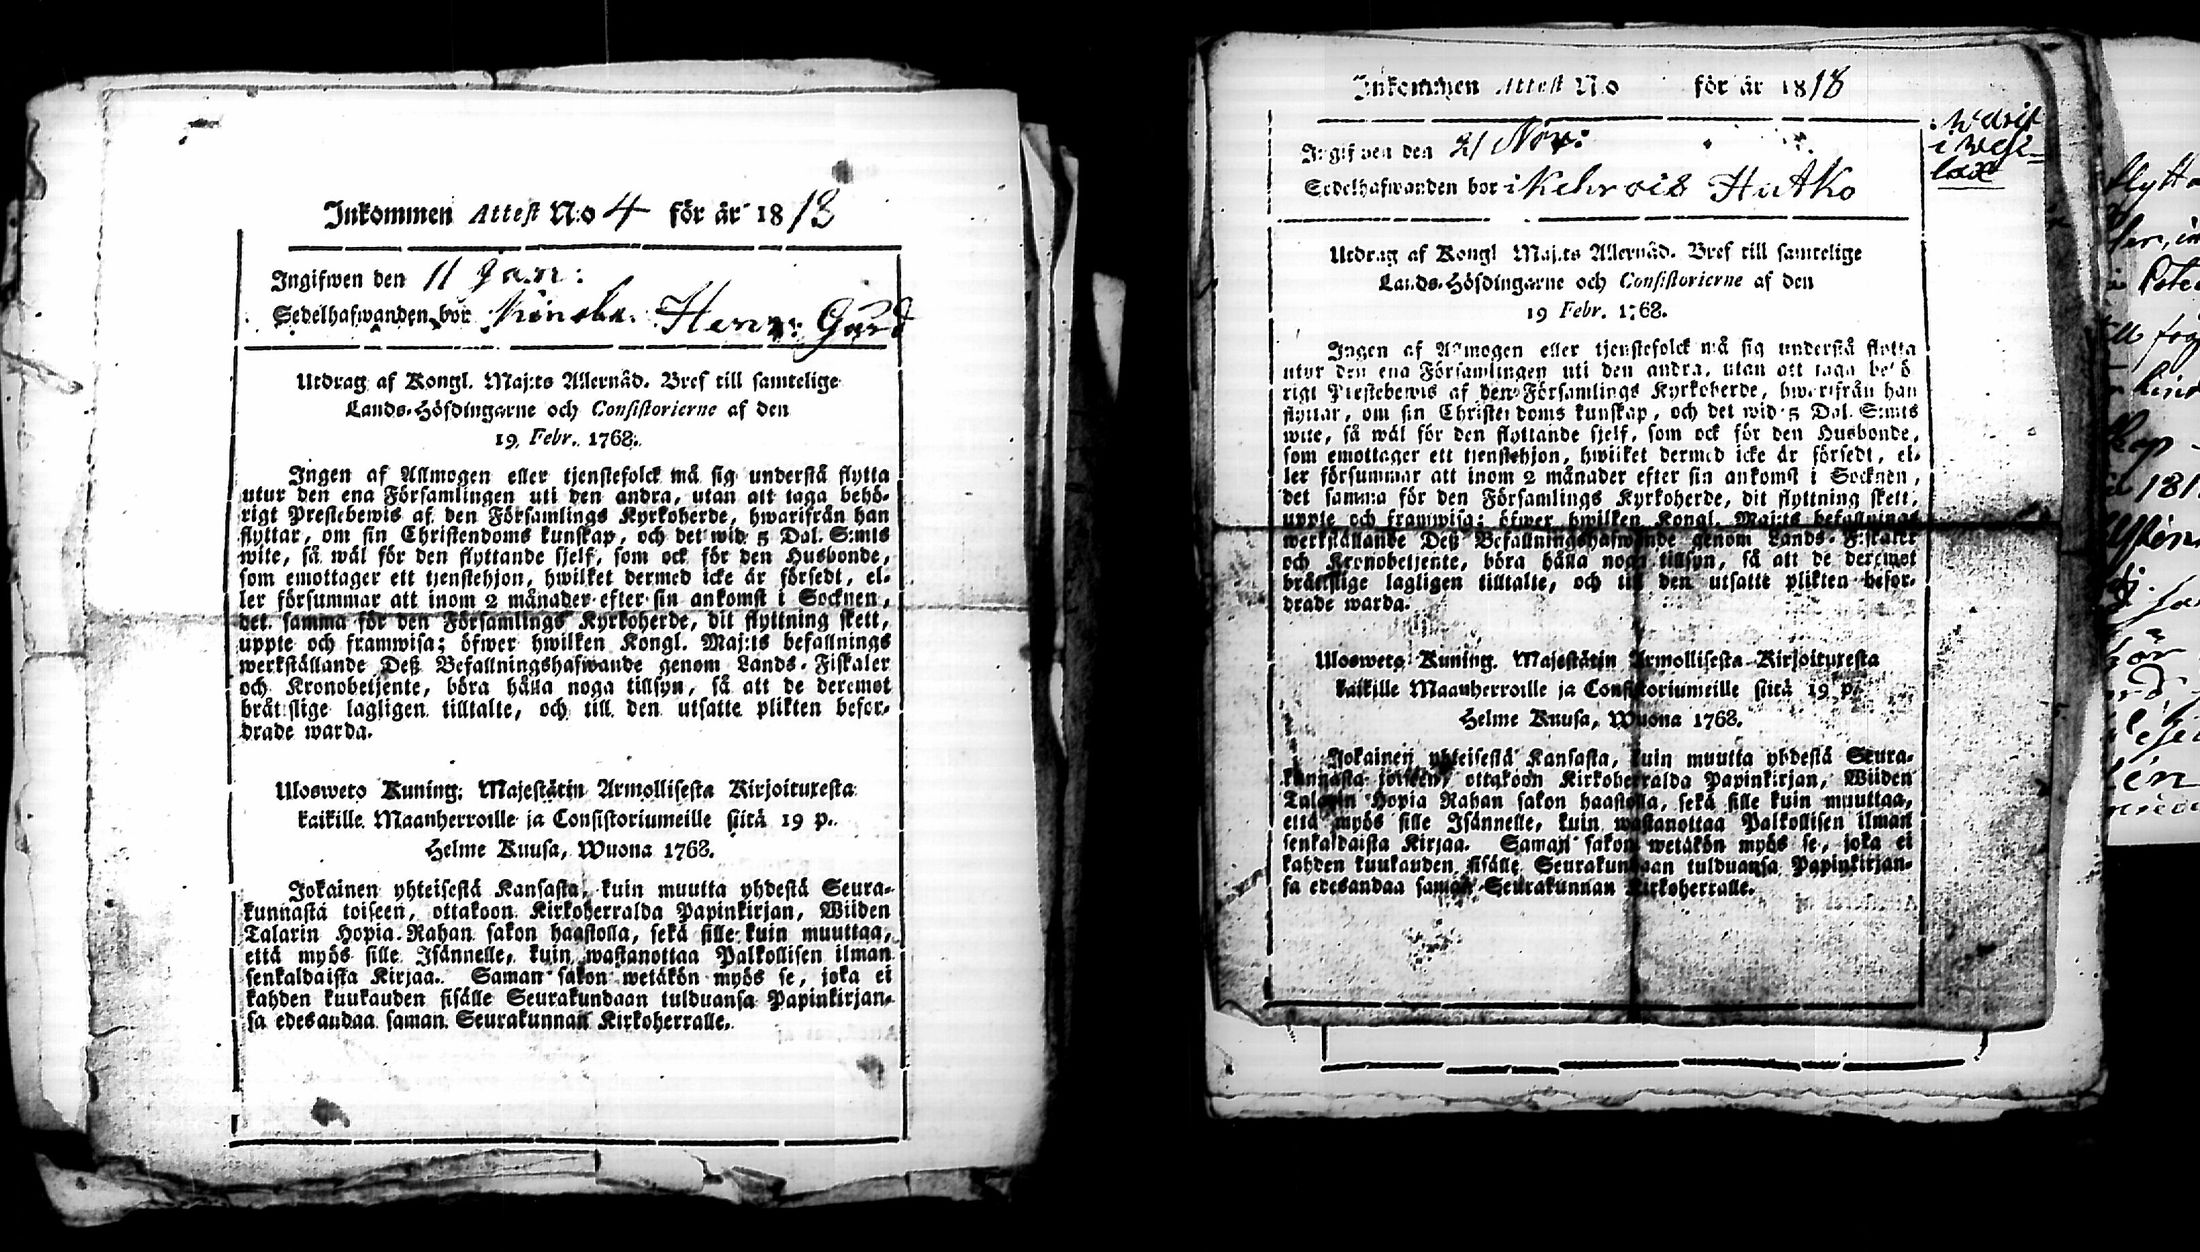 Inkommen Attest N:o 4 för år 1813
Ingifwen den 11 Jan:
Sedelhafwanden bor Henr: Gård
Utdrag af Kongl. Maj:ts Allernåd. Bref till samtelige
Lands-Höfdingarne och Consistorierne af den
19 Febr. 1768.
Ingen af Allmogen eller tjenstefolck må sig understå flytta
utur den ena Församlingen uti den andra, utan att taga behö-
rigt Prestebewis af den Församlings Kyrkoherde, hwarifrån han
flyttar, om sin Christendoms kunskap, och det wid 5 Dal. S:mts
wite, så wäl för den flyttande sjelf, som ock för den Husbonde,
som emottager ett tjenstehjon, hwilket dermed icke är försedt, el-
ler försummar att inom 2 månader efter sin ankomst i Socknen,
det samma för den Församlings Kyrkoherde, dit flyttning skett,
uppte och framwisa; öfwer hwilken Kongl. Maj:ts befallnings
werkställande Deß Befallningshafwande genom Lands-Fiskaler
och Kronobetjente, böra hålla noga tillsyn, så att de deremot
bråttslige lagligen tilltalte, och till den utsatte plikten befor-
drade warda.
Ulosweto Kuning. Majestätin Armollisesta Kirjoituxesta
kaikille Maanherroille ja Consistoriumeille siitä 19 p.
Helme Kuusa, Wuona 1768.
Jokainen yhteisestä Kansasta, kuin muutta yhdestä Seura-
kunnasta toiseen, ottakoon Kirkoherralda Papinkirjan, Wiiden
Talarin Hopia Rahan sakon haastolla, sekä sille kuin muuttaa,
että myös sille Isännelle, kuin wastanottaa Palkollisen ilman
senkaldaista Kirjaa. Saman sakon wetäkön myös se, joka ei
kahden kuukauden sisälle Seurakundaan tulduansa Papinkirjan-
sa edesandaa saman Seurakunnan Kirkoherralle.
Inkommen Attest N:o för år 1818
Ingifwen den 21 Nov:
Sedelhafwanden bor i Kehrois Hutko
Utdrag af Kongl Maj:ts Allernåd. Bref till samtelige
Lands-Höfdingarne och Consistorierne af den
19 Febr. 1768.
Ingen af Allmogen eller tjenstefolck må sig understå flytta
utur den ena Församlingen uti den andra, utan att taga behö
rigt Prestebewis af den Församlings Kyrkoherde, hwarifrån han
flyttar, om sin Christendoms kunskap, och det wid 5 Dal. S:mts
wite, så wäl för den flyttande sjelf, som ock för den Husbonde,
som emottager ett tjenstehjon, hwilket dermed icke är försedt, el-
ler försummar att inom 2 månader efter sin ankomst i Socknen,
det samma för den Församlings Kyrkoherde, dit flyttning skett,
uppte och framwisa; öfwer hwilken Kongl. Maj:ts befallnings
werkställande Deß Befallningshafwande genom Lands-Fiskaler
och Kronobetjente, böra hålla noga tillsyn, så att de deremot
bråttslige lagligen tilltalte, och till den utsatte plikten befor-
drade warda.
Ulosweto Kuning. Majestätin Armollisesta Kirjoituxesta
kaikille Maanherroille ja Consistoriumeille siitä 19 p.
Helme Kuusa, Wuona 1768.
Jokainen yhteisestä Kansasta, kuin muutta yhdestä Seura-
kunnasta toiseen, ottakoon Kirkoherralda Papinkirjan, Wiiden
Talarin Hopia Rahan sakon haastolla, sekä sille kuin muuttaa,
että myös sille Isännelle, kuin wastanottaa Palkollisen ilman
senkaldaista Kirjaa. Saman sakon wetäkön myös se, joka ei
kahden kuukauden sisälle Seurakundaan tulduansa Papinkirjan-
sa edesandaa saman Seurakunnan Kirkoherralle.